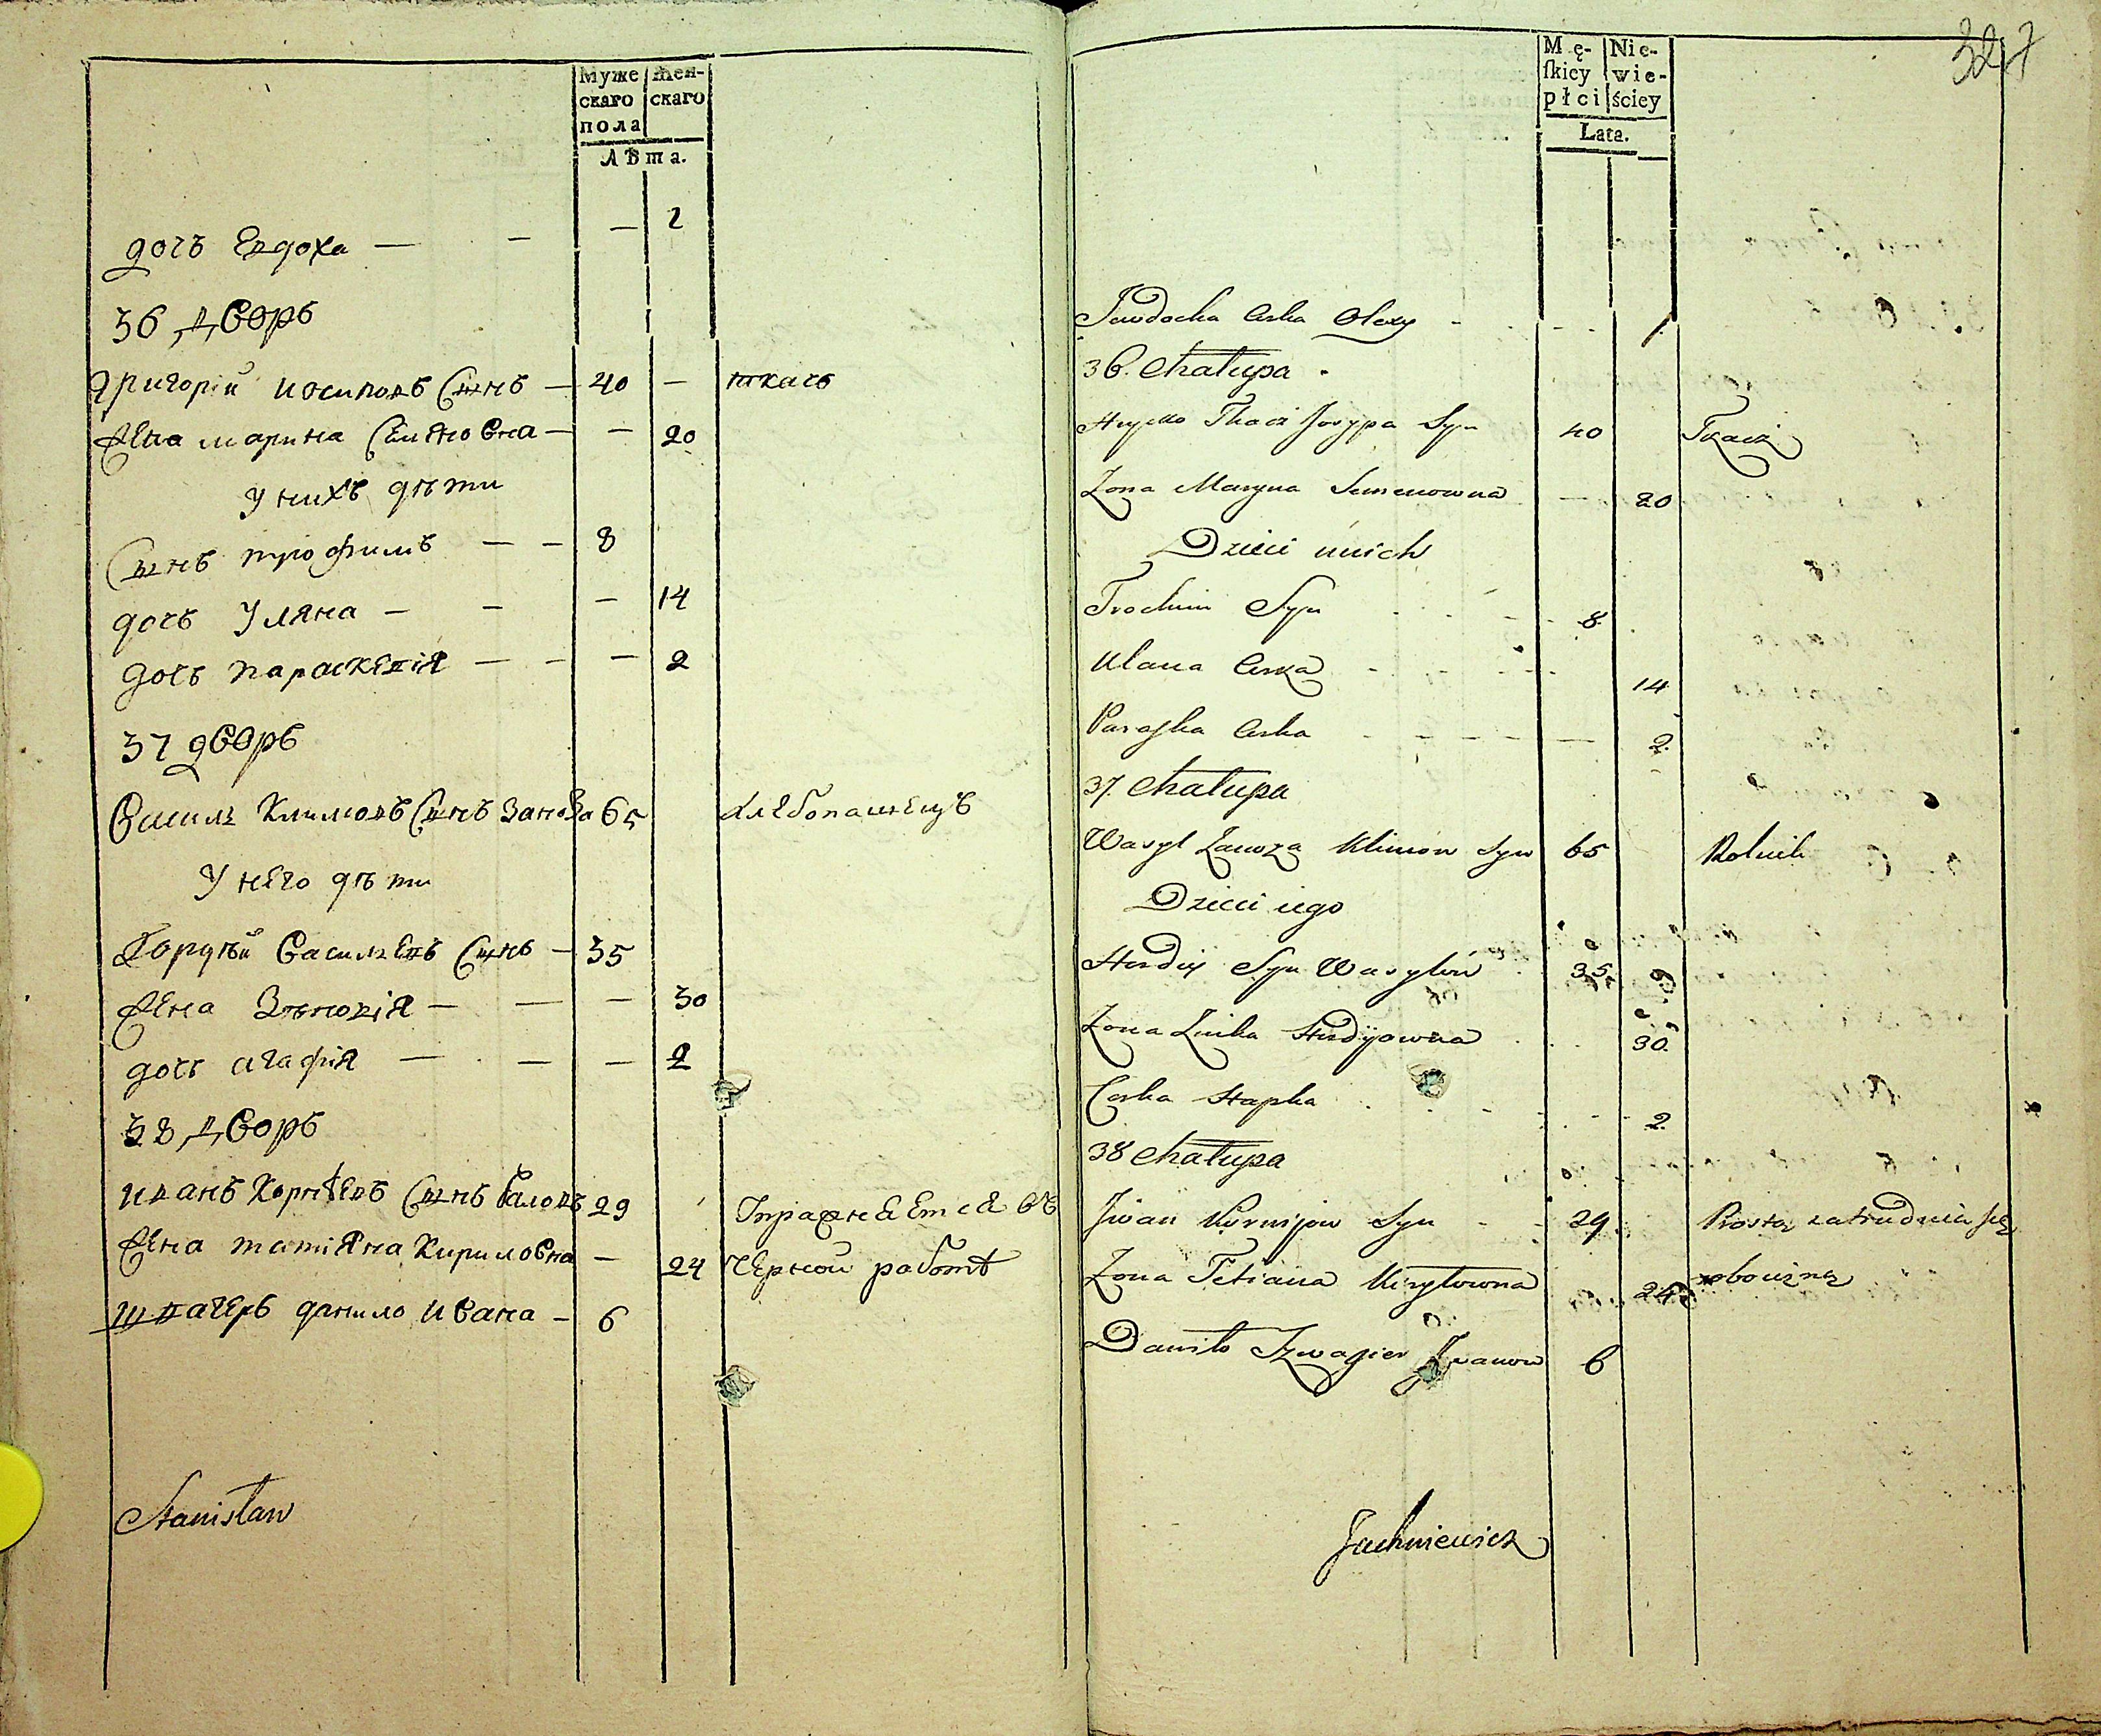 Муже
скаго
пола
жен-
скаго
Лѣта.
дочь Евдоха — — — 2
36 дворъ
Григорій иосиповъ Сынъ — 40 — ткачь
Жена марина Семяновна — — 20
У нихъ дѣти
Сынъ трофимъ — — 8
дочь Уляна — — — 14
дочь параскевія — — — 2
37 дворъ
Василь Климовъ Сынъ Заноза 65 хлебопашецъ
У него дѣти
Гордѣй Васильевъ Сынъ — 35
Жена Зѣновія — — — 30
дочь агафія — — — 2
38 дворъ
иванъ Корнѣевъ Сынъ 29 Упражняется въ
Жена татіяна Кириловна — 24 черной работѣ
швагеръ данило Ивана — 6
Stanisław
327
Mę-
ſkiey
płci
Nie-
wie-
ściey
Lata.
Jewdocha Crka Olexy
36. Chałupa
Hryćko Tkacz Josypa Syn 40 Tkacz
Zona Maryna Semenowna — 20
Dzieci unich
Trochim Syn 8
Ulana Crka 14
Paraska Crka 2
37. Chałupa
Wasyl Zanoza Klimow Syn 65 Rolnik
Dzieci iego
Hordiy Syn Wasylow 35
Zona Zinka Hordijowna 30
Corka Hapka 2
38 Chałupa
Jwan Kornijow Syn 29 Prostą zatrudnia się
Zona Tetiana Kiryłowna 24 robocizną
Daniło Szwagier Jwanow 6
Juchniewicz